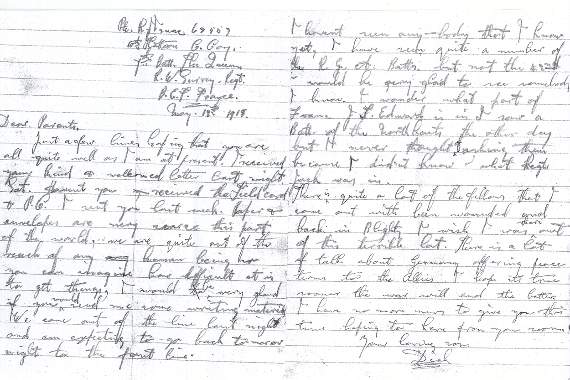 Pte. R. Prince 68807
Platoon C. Coy.
7th Batt. The Queens
R. W. Surrey. Regt.
B.E.F. France.
18th 1918.
Dear. Parents.
Just a few lines hoping that you are
all quite well as I am at present. I received
your kind & welcomed letter last night
you received the field card
& P.C. I sent you last week. Paper &
envelopes are very scarce this part
of the world, we are quite out of the
reach of any human being
you can imagine how difficult it is
to get things. I would be very glad
if you would send me some writing material
We came out of the line last night
and am expecting to go back to-morrow
night to the front line.
I havent seen any-body that I know
yet, I have seen quite a number of
the R. G. A. Batts. but not the
would be very glad to see somebody
I know. I wonder what part of
France F. Edwards is in I saw a
Batt. of the Northants the other day
but I never thought asking them
because I didnt know what Regt
Jack was in.
There is quite a lot of the fellows that I
came out with been wounded and
back in Blighty I wish I was out
of this terrible lot. There is a lot
of talk about Germany offering peace
terms to the Allies I hope its true
sooner the war will end the better
I have no more news to give you this
time hoping to hear from you soon
Your loving son
Dick